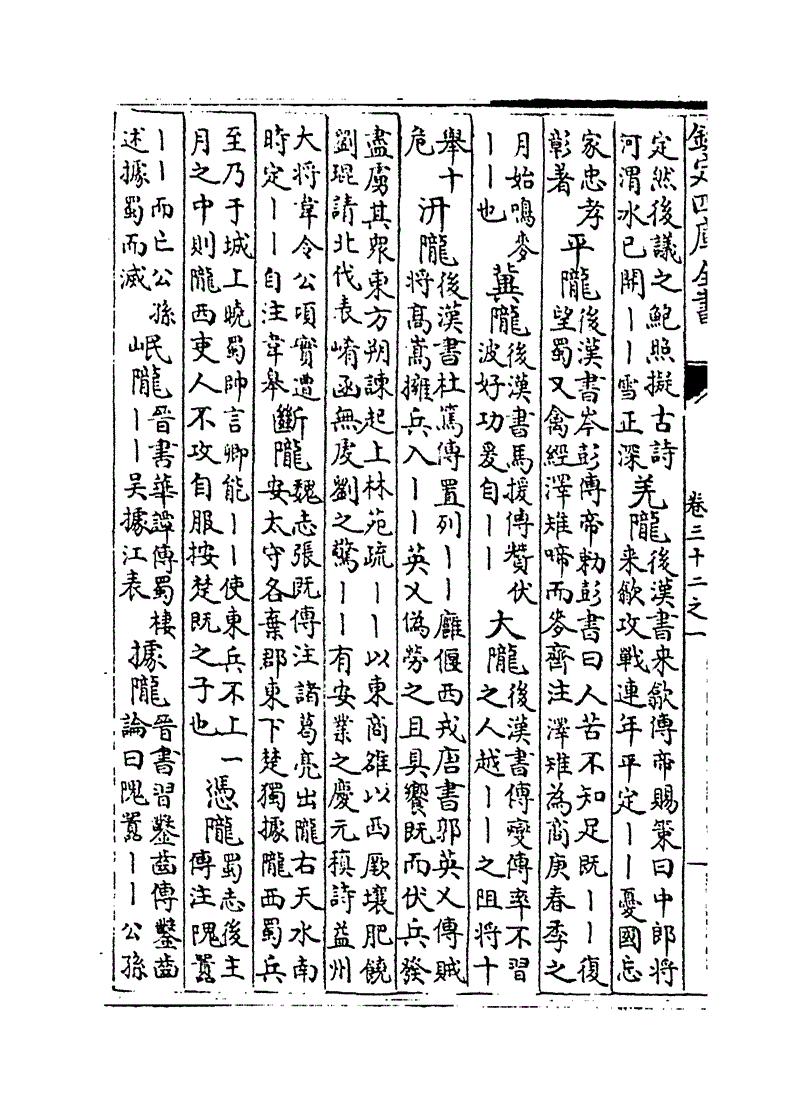 欽定四庫全書
卷三十二之一
定然後議之鮑照擬古詩
河渭水已開丨丨雪正深
羌隴
後漢書来歙傳帝賜策曰中郎將
来歙攻戰連年平定丨丨憂國忘
家忠孝
彰著
平隴
後漢書岑彭傳帝勅彭書曰人苦不知足既丨丨復
望蜀又禽經澤雉啼而麥齊注澤雉為商庚春季之
月始鳴麥
丨丨也
冀隴
後漢書馬援傳贊伏
波好功爰自丨丨
大隴
後漢書傅燮傳率不習
之人越丨丨之阻將十
舉十
危
汧隴
後漢書杜篤傳置列丨丨廱偃西戎唐書郭英乂傳賊
将髙嵩擁兵入丨丨英乂偽勞之且具饗既而伏兵發
盡虜其衆東方朔諫起上林苑疏丨丨以東商雒以西厥壤肥饒
劉琨請北代表崤函無虔劉之驚丨丨有安業之慶元稹詩益州
大将韋令公項實遭
時定丨丨自注韋舉
斷隴
魏志張既傳注諸葛亮出隴右天水南
安太守各棄郡東下楚獨據隴西蜀兵
至乃于城上曉蜀帥言卿能丨丨使東兵不上一
月之中則隴西吏人不攻自服按楚既之子也
憑隴
蜀志後主
傳注隗囂
丨丨而亡公孫
述據蜀而滅
岷隴
晉書華譚傳蜀棲
丨丨吴據江表
據隴
晉書習鑿齒傳鑿齒
論曰隗囂丨丨公孫